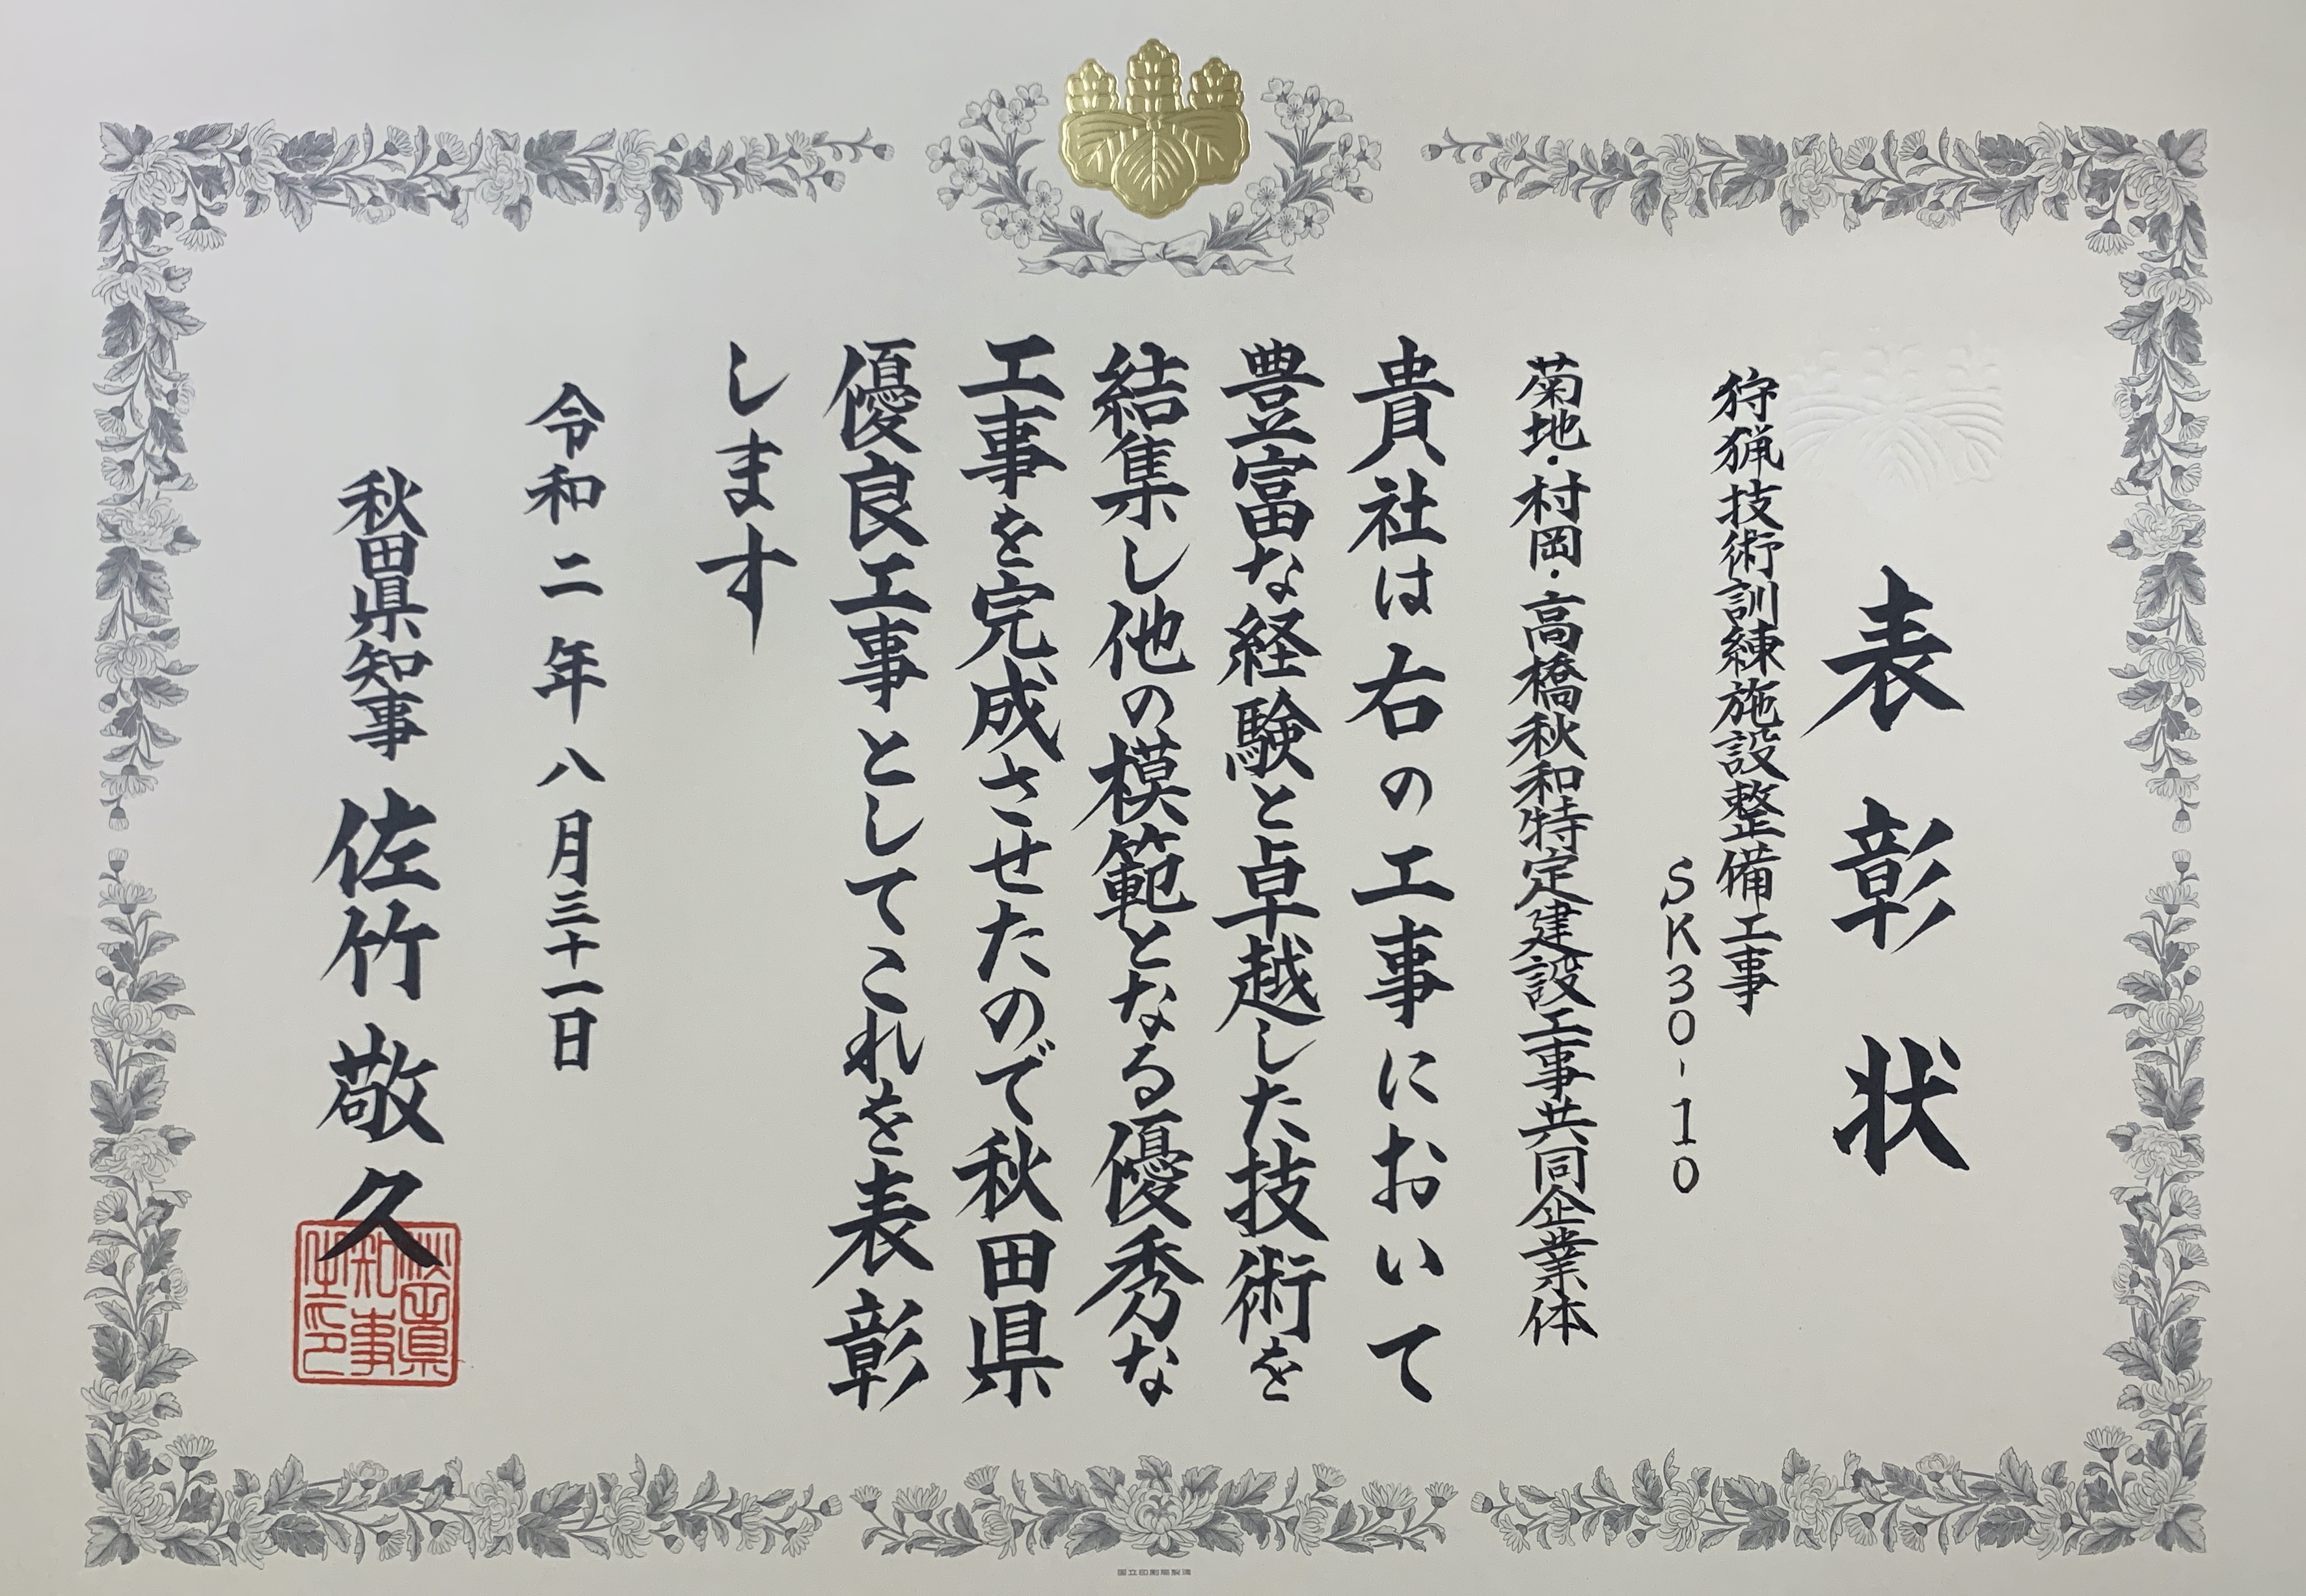 表彰状
狩猟技術訓練施設整備工事
SK30-10
菊地・村岡・高橋秋和特定建設工事共同企業体
貴社は右の工事において
豊富な経験と卓越した技術を
結集し他の模範となる優秀な
工事を完成させたので秋田県
優良工事としてこれを表彰
します
令和二年八月三十一日
秋田県知事 佐竹敬久
秋田県
知事
之印
国立印刷局製造